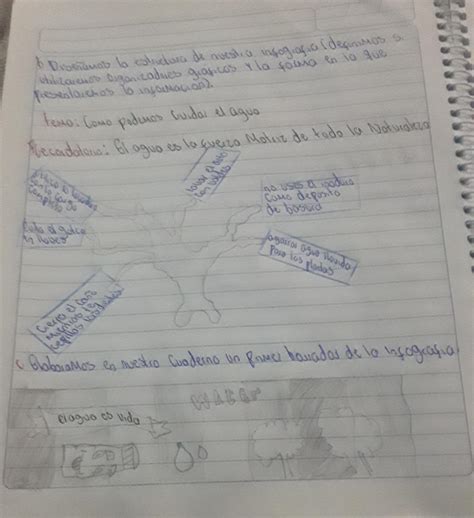 b Diseñamos la estructura de nuestra infografía (definimos si
utilizaremos organizadores gráficos y la forma en la que
presentaremos la información).
tema: Como podemos Cuidar el agua
Recordatorio: El agua es la fuerza Motriz de toda la Naturaleza
Lavar el
con
no uses el inodoro
como deposito
de basura
en llaves
agarrar agua lluvida
Para las plantas
Cierra el caño
mientras te
cepillas
c Elaboramos en nuestro Cuaderno un Primer borrador de la infografía
CUIDAR
El agua es vida